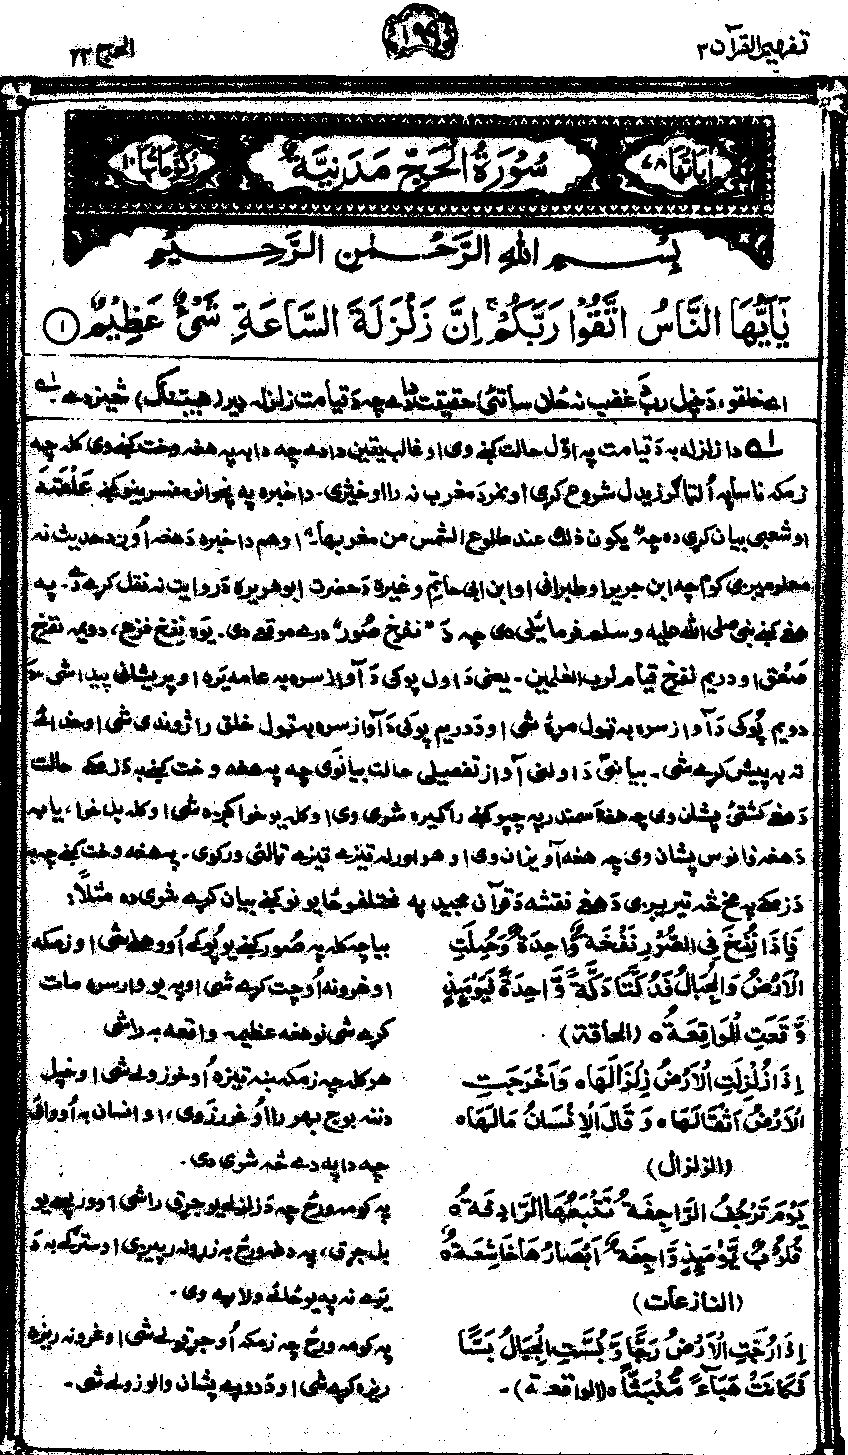 تفهیم القرآن ۳
۱۹۹
الحج ۲۲
اٰیَاتُهَا ۷۸
سُوْرَةُ الْحَجِّ مَدَنِیَّةٌ
رُكُوْعَاتُهَا ۱۰
بِسْمِ اللهِ الرَّحْمٰنِ الرَّحِیْمِ
یٰۤاَیُّهَا النَّاسُ اتَّقُوْا رَبَّكُمْ ۚ اِنَّ زَلْزَلَةَ السَّاعَةِ شَیْءٌ عَظِیْمٌ ۱
اے خلقو، دَ خپل ربّ غضب نه ځان ساتئ! حقیقت دا دے چه دَ قیامت زلزله ډیر (هیبتناک) څیز دے ۱
۱ دا زلزله به دَ قیامت په اوّل حالت کښے وی او غالب یقین دا دے چه دا به په هغه وخت کښے وی کله چه
زمکه ناسا‌په اُلټا ګرزیدل شروع کړی او نمر دَ مغرب نه را اوخیژی۔ دا خبره په پخوانو مفسرینو کښے عَلْقَمَة
او شعبی بیان کړی ده چه یکون ذلك عند طلوع الشمس من مغربها۔ او هم دا خبره دَ هغه اُوږد حدیث نه
معلومیږی کوم چه ابن جریر او طبرانی او ابن ابی حاتم وغیره دَ حضرت ابو هریره دَ روایت نه نقل کړے دے۔ په
هغے کښے نبی صلی الله علیه وسلم فرمائیلی دی چه دَ "نفخ صُور" درے موقعے دی۔ یوه نفخ فزع، دویمه نفخ
صَعْق او دریم نفخ قیام لرب العٰلمین۔ یعنی دَ اول پوکی دَ آواز سره به عامه یَره او پریشانی پیدا شی
دویم پُوکی دَ آواز سره به ټول مړهٔ شی او دَ دریم پوکی دَ آواز سره به ټول خلق راژوندی شی او خدائے
ته به پیش کړے شی۔ بیا نبی دَ اولنی آواز تفصیلی حالت بیانوی چه په هغه وخت کښے به دَ زمکے حالت
دَ هغے کشتئ پشان وی چه هغه سمندر په چپو کښے راګیره شوی وی او کله یو خوا کږه شی او کله بل خوا، یا به
دَ هغه فانوس پشان وی چه هغه آویزان وی او هوا ورله تیزے تیزے ټالئ ورکوی۔ په هغه وخت کښے چه به
دَ زمکے په مخ څه تیریږی دَ هغے نقشه دَ قرآن مجید په مختلفو ځایونو کښے بیان کړے شوی ده مثلاً:
فَاِذَا نُفِخَ فِی الصُّوْرِ نَفْخَةٌ وَّاحِدَةٌ وَّحُمِلَتِ
الْاَرْضُ وَالْجِبَالُ فَدُكَّتَا دَكَّةً وَّاحِدَةً فَیَوْمَىِٕذٍ
وَّقَعَتِ الْوَاقِعَةُ ۝ (الحاقة)
بیا چه کله په صُور کښے یو پُوکے اُووهلے شی او زمکه
او غرونه اُوچت کړے شی او په یو وار سره مات
کړے شی نو هغه عظیمه واقعه به راشی
اِذَا زُلْزِلَتِ الْاَرْضُ زِلْزَالَهَا ۝ وَاَخْرَجَتِ
الْاَرْضُ اَثْقَالَهَا ۝ وَقَالَ الْاِنْسَانُ مَالَهَا ۝
(الزلزال)
هر کله چه زمکه ښه تیزه اُوخوزولے شی او خپل
دننه بوج بهر را اُوغورزَوی، او انسان به اُووائی
چه دا په دے څه شوی دی۔
یَوْمَ تَرْجُفُ الرَّاجِفَةُ تَتْبَعُهَا الرَّادِفَةُ ۝
قُلُوْبٌ یَّوْمَىِٕذٍ وَّاجِفَةٌ اَبْصَارُهَا خَاشِعَةٌ ۝
(النازعات)
په کومه ورځ چه دَ زلزلے یو جرق راشی او ورپسے یو
بل جرق، په دغه ورځ به زړونه رپیږی او سترګے به دَ
یَرے نه په یو ځائے ولاړے وی۔
اِذَا رُجَّتِ الْاَرْضُ رَجًّا وَّبُسَّتِ الْجِبَالُ بَسًّا
فَكَانَتْ هَبَآءً مُّنْۢبَثًّا ۝ (الواقعة)۔
په کومه ورځ چه زمکه اُوجرقولے شی او غرونه ریزه
ریزه کړے شی او دَ دوړے پشان والوزولے شی۔